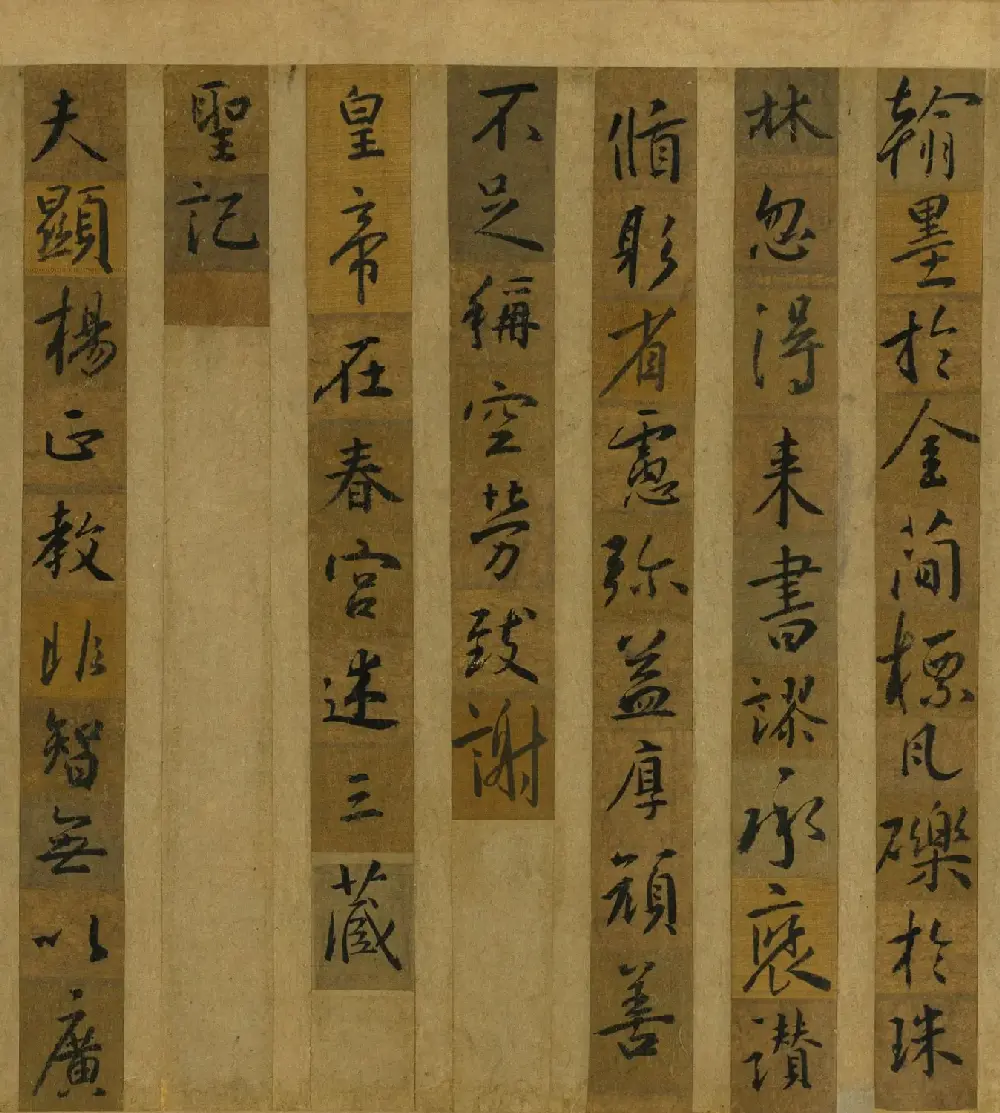 翰墨於金簡標瓦礫於珠
林忽得来書謬承褒讃
循躬省慮弥益厚顔善
不足稱空勞致謝
皇帝在春宮述三藏
聖記
夫顯楊正教非智無以廣